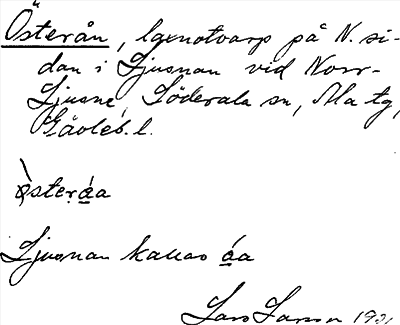 Österån, laxnotvarp på N. si-
dan i Ljusnan vid Norr-
Ljusne, Söderala sn, Ala tg,
Gävleb. l.
òsterạ́a
Ljusnan kallas á̱a
Lars Larsson 1931